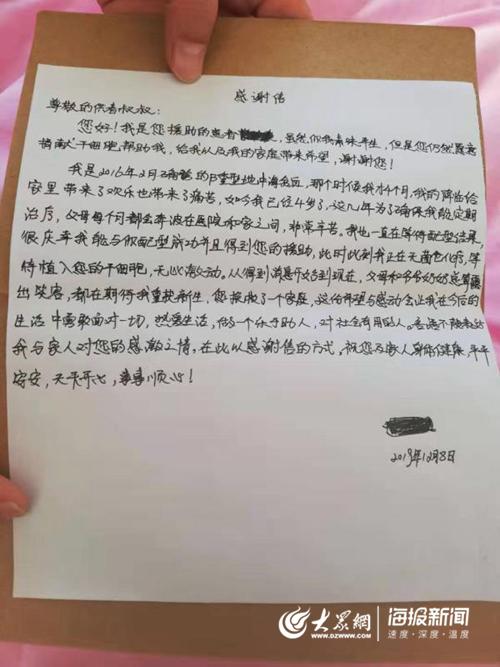 感谢信
尊敬的供者叔叔：
您好！我是您援助的患者，虽然你我素昧平生，但是您仍然愿意
捐献干细胞帮助我，给我以及我的家庭带来希望，谢谢您！
我是2016年2月确诊的β重型地中海贫血，那个时候我才4个月，我的降临给
家里带来了欢乐也带来了痛苦，如今我已经4岁了，这几年为了确保我能定期
治疗，父母每个月都会奔波在医院和家之间，非常辛苦，我也一直在等待配型结果，
很庆幸我能与你配型成功并且得到您的援助，此时此刻我正在无菌仓化疗，等
待植入您的干细胞，无比激动，从得到消息开始到现在，父母和爷爷奶奶总算露
出笑容，都在期待我重获新生，您拯救了一个家庭，这份希望与感动会让我在今后的
生活中勇敢面对一切，热爱生活，做一个乐于助人，对社会有用的人。言语不能表达
我与家人对您的感激之情，在此以感谢信的方式，祝您及家人身体健康，平平
安安，天天开心，事事顺心！
2019年12月8日
大众網 海报新闻
WWW.DZWWW.COM 速度·深度·温度